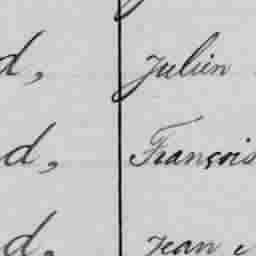 d, Julien
d, François
d, Jean